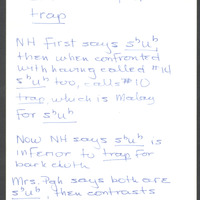 trap
NH first says sʰuᵇ,
then when confronted
with having called #14
sʰuᵇ too, calls #10
trap which is Malay
for sʰuᵇ
Now NH says sʰuᵇ is
inferior to trap for
bark cloth
Mrs. Pgh says both are
sʰuᵇ, then contrasts